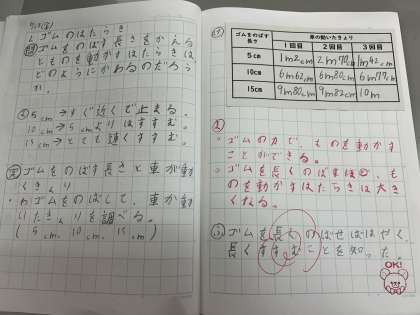 1 ゴムのはたらき
問 ゴムをのばす長さをかえる
とものを動かすはたらきは
どのようにかわるのだろう
か。
5cm→すぐ近くで止まる。
10cm→5cmよりはすすむ。
15cm→とても速くすすむ。
実 ゴムをのばす長さと車が動
くきょり
・わゴムをのばして、車が動
いたきょりを調べる。
(5cm、10cm、15cm)
ゴムをのばす長さ 車の動いたきょり
1回目 2回目 3回目
5cm 1m2cm 2m70cm 1m42cm
10cm 6m62cm 6m80cm 6m77cm
15cm 9m80cm 9m82cm 10m
・ゴムの力で、ものを動かす
ことができる。
・ゴムを長くのばすほど、も
のを動かすはたらきは大き
くなる。
ふ ゴムを長くのばせばはやく、
長くすすむことを知った。
OK!